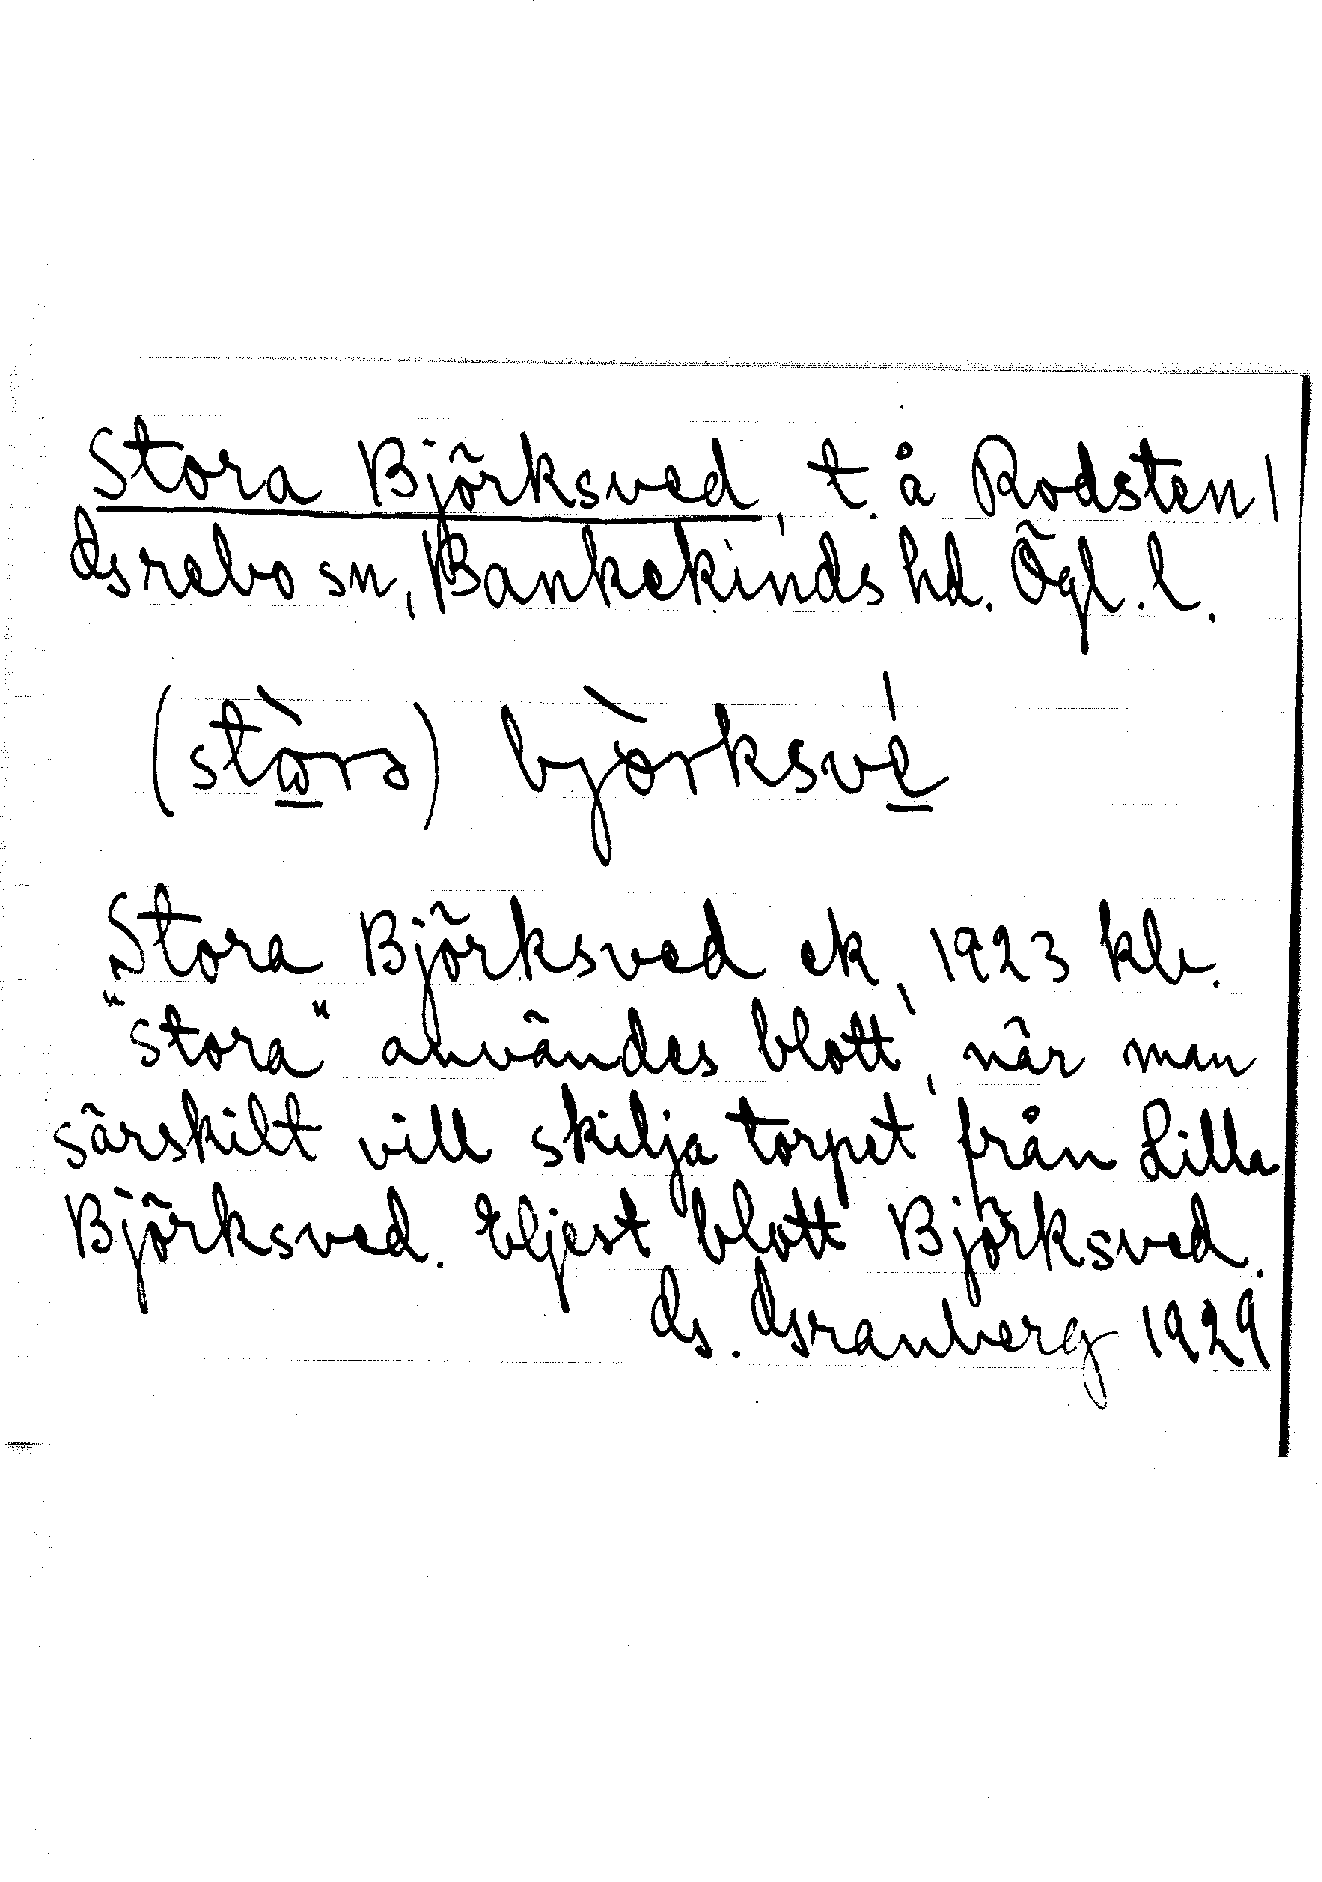 Stora Björksved, t. å Rodsten 1
Grebo sn, Bankekinds hd. Ögl. l.
(stòrɔ) bjòrksvé
Stora Björksved ek, 1923 kb.
"Stora" användes blott, när man
särskilt vill skilja torpet från Lilla
Björksved. Eljest blott Björksved.
G. Granberg 1929